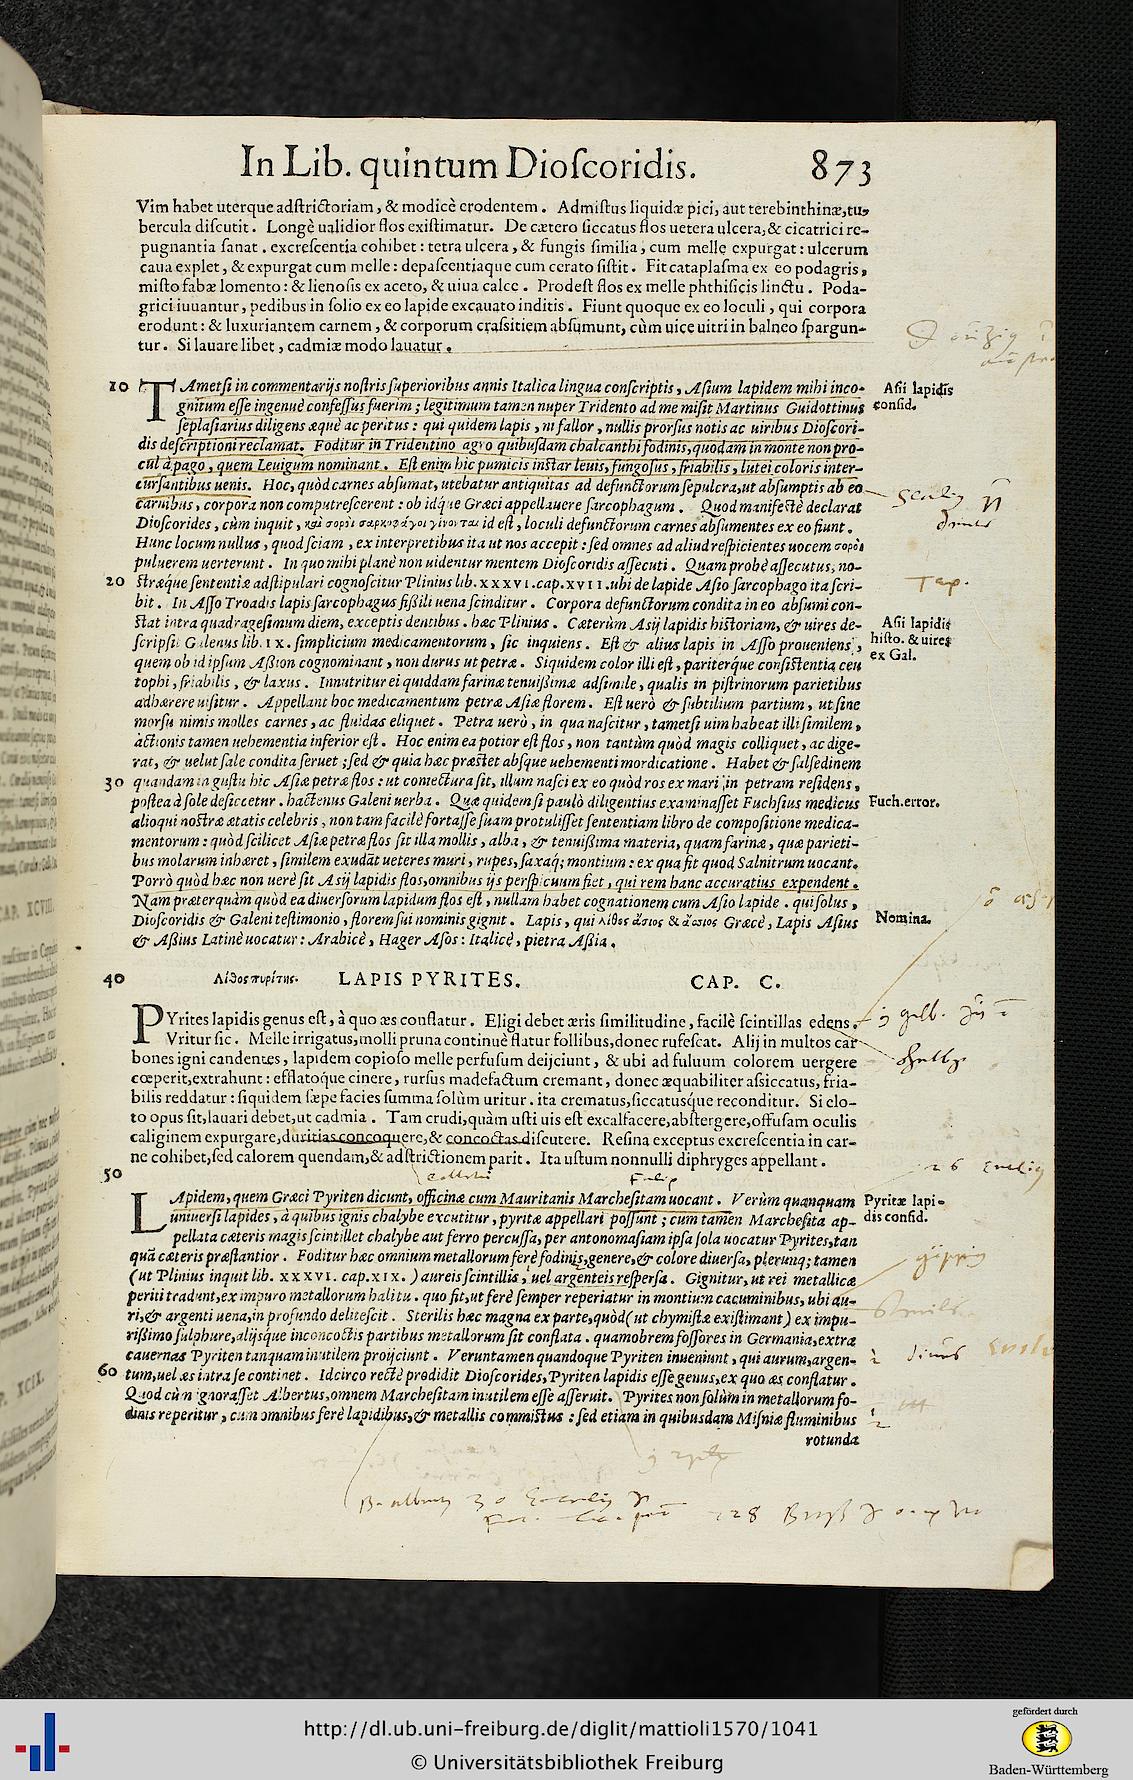 In Lib. quintum Dioſcoridis. 873
Vim habet uterque adſtrictoriam, & modicè erodentem. Admiſtus liquidæ pici, aut terebinthinæ, tu-
bercula diſcutit. Longè ualidior flos exiſtimatur. De cætero ſiccatus flos uetera ulcera, & cicatrici re-
pugnantia ſanat. excreſcentia cohibet: tetra ulcera, & fungis ſimilia, cum melle expurgat: ulcerum
caua explet, & expurgat cum melle: depaſcentiaque cum cerato ſiſtit. Fit cataplaſma ex eo podagris,
miſto fabæ lomento: & lienoſis ex aceto, & uiua calce. Prodeſt flos ex melle phthiſicis linctu. Poda-
grici iuuantur, pedibus in ſolio ex eo lapide excauato inditis. Fiunt quoque ex eo loculi, qui corpora
erodunt: & luxuriantem carnem, & corporum craſsitiem abſumunt, cùm uice uitri in balneo ſpargun-
tur. Si lauare libet, cadmiæ modo lauatur.
10 TAmetſi in commentarijs noſtris ſuperioribus annis Italica lingua conſcriptis, Aſium lapidem mihi inco- Aſii lapidis
gnitum eſſe ingenuè confeſſus fuerim; legitimum tamen nuper Tridento ad me miſit Martinus Guidottinus conſid.
ſeplaſiarius diligens æquè ac peritus: qui quidem lapis, ni fallor, nullis prorſus notis ac uiribus Dioſcori-
dis deſcriptioni reclamat. Foditur in Tridentino agro quibuſdam chalcanthi fodinis, quodam in monte non pro-
cul à pago, quem Leuigum nominant. Eſt enim hic pumicis inſtar leuis, fungoſus, friabilis, lutei coloris inter-
curſantibus uenis. Hoc, quòd carnes abſumat, utebatur antiquitas ad defunctorum ſepulcra, ut abſumptis ab eo
carnibus, corpora non computreſcerent: ob idq́ue Græci appellauere ſarcophagum. Quod manifeſtè declarat
Dioſcorides, cùm inquit, καὶ σοροὶ σαρκοφάγοι γίνονται id eſt, loculi defunctorum carnes abſumentes ex eo fiunt.
Hunc locum nullus, quod ſciam, ex interpretibus ita ut nos accepit: ſed omnes ad aliud reſpicientes uocem σοροὶ
puluerem uerterunt. In quo mihi planè non uidentur mentem Dioſcoridis aſſecuti. Quam probè aſſecutus, no-
20 ſtræque ſententiæ adſtipulari cognoſcitur Plinius lib. XXXVI. cap. XVII. ubi de lapide Aſio ſarcophago ita ſcri-
bit. In Aſſo Troadis lapis ſarcophagus fißili uena ſcinditur. Corpora defunctorum condita in eo abſumi con-
ſtat intra quadrageſimum diem, exceptis dentibus. hæc Plinius. Cæterùm Aſij lapidis hiſtoriam, & uires de- Aſii lapidis
ſcripſit Galenus lib. IX. ſimplicium medicamentorum, ſic inquiens. Eſt & alius lapis in Aſſo proueniens, hiſto. & uires
quem ob id ipſum Aßion cognominant, non durus ut petræ. Siquidem color illi eſt, pariterq́ue conſiſtentia ceu ex Gal.
tophi, friabilis, & laxus. Innutritur ei quiddam farinæ tenuißimæ adſimile, qualis in piſtrinorum parietibus
adhærere uiſitur. Appellant hoc medicamentum petræ Aſiæ florem. Eſt uerò & ſubtilium partium, ut ſine
morſu nimis molles carnes, ac fluidas eliquet. Petra uerò, in qua naſcitur, tametſi uim habeat illi ſimilem,
actionis tamen uehementia inferior eſt. Hoc enim ea potior eſt flos, non tantùm quòd magis colliquet, ac dige-
rat, & uelut ſale condita ſeruet; ſed & quia hæc præſtet abſque uehementi mordicatione. Habet & ſalſedinem
30 quandam in guſtu hic Aſiæ petræ flos: ut coniectura ſit, illum naſci ex eo quòd ros ex mari in petram reſidens,
poſtea à ſole deſiccetur. hactenus Galeni uerba. Quæ quidem ſi paulò diligentius examinaſſet Fuchſius medicus Fuch. error.
alioqui noſtræ ætatis celebris, non tam facilè fortaſſe ſuam protuliſſet ſententiam libro de compoſitione medica-
mentorum: quòd ſcilicet Aſiæ petræ flos ſit illa mollis, alba, & tenuißima materia, quam farinæ, quæ parieti-
bus molarum inhæret, ſimilem exudāt ueteres muri, rupes, ſaxaq́; montium: ex qua fit quod Salnitrum uocant.
Porrò quòd hæc non uerè ſit Aſij lapidis flos, omnibus ijs perſpicuum fiet, qui rem hanc accuratius expendent.
Nam præterquàm quòd ea diuerſorum lapidum flos eſt, nullam habet cognationem cum Aſio lapide. qui ſolus,
Dioſcoridis & Galeni teſtimonio, florem ſui nominis gignit. Lapis, qui λίθος ἄσιος & ἄσσιος Græcè, Lapis Aſius Nomina.
& Aßius Latinè uocatur: Arabicè, Hager Aſos: Italicè, pietra Aßia.
40 Λίθος πυρίτης. LAPIS PYRITES. CAP. C.
PYrites lapidis genus eſt, à quo æs conflatur. Eligi debet æris ſimilitudine, facilè ſcintillas edens.
Vritur ſic. Melle irrigatus, molli pruna continuè flatur follibus, donec rufeſcat. Alij in multos car
bones igni candentes, lapidem copioſo melle perfuſum deijciunt, & ubi ad fuluum colorem uergere
cœperit, extrahunt: efflatoque cinere, rurſus madefactum cremant, donec æquabiliter aſsiccatus, fria-
bilis reddatur: ſiquidem ſæpe facies ſumma ſolùm uritur. ita crematus, ſiccatusque reconditur. Si elo-
to opus ſit, lauari debet, ut cadmia. Tam crudi, quàm uſti uis eſt excalfacere, abſtergere, offuſam oculis
caliginem expurgare, duritias concoquere, & concoctas diſcutere. Reſina exceptus excreſcentia in car-
ne cohibet, ſed calorem quendam, & adſtrictionem parit. Ita uſtum nonnulli diphryges appellant.
50
LApidem, quem Græci Pyriten dicunt, officinæ cum Mauritanis Marcheſitam uocant. Verùm quanquam Pyritæ lapi-
uniuerſi lapides, à quibus ignis chalybe excutitur, pyritæ appellari poſſunt; cum tamen Marcheſita ap- dis conſid.
pellata cæteris magis ſcintillet chalybe aut ferro percuſſa, per antonomaſiam ipſa ſola uocatur Pyrites, tan
quā cæteris præſtantior. Foditur hæc omnium metallorum ferè fodinis, genere, & colore diuerſa, plerunq; tamen
(ut Plinius inquit lib. XXXVI. cap. XIX.) aureis ſcintillis, uel argenteis reſperſa. Gignitur, ut rei metallicæ
periti tradunt, ex impuro metallorum halitu. quo fit, ut ferè ſemper reperiatur in montium cacuminibus, ubi au-
ri, & argenti uena, in profundo deliteſcit. Sterilis hæc magna ex parte, quòd (ut chymiſtæ exiſtimant) ex impu-
rißimo ſulphure, alijſque inconcoctis partibus metallorum ſit conflata. quamobrem foſſores in Germania, extra
cauernas Pyriten tanquam inutilem proijciunt. Veruntamen quandoque Pyriten inueniunt, qui aurum, argen-
60 tum, uel æs intra ſe continet. Idcirco rectè prodidit Dioſcorides, Pyriten lapidis eſſe genus, ex quo æs conflatur.
Quod cùm ignoraſſet Albertus, omnem Marcheſitam inutilem eſſe aſſeruit. Pyrites non ſolùm in metallorum fo-
dinis reperitur, cum omnibus ferè lapidibus, & metallis commiſtus: ſed etiam in quibuſdam Miſniæ fluminibus
rotunda
http://dl.ub.uni-freiburg.de/diglit/mattioli1570/1041
© Universitätsbibliothek Freiburg
gefördert durch
Baden-Württemberg